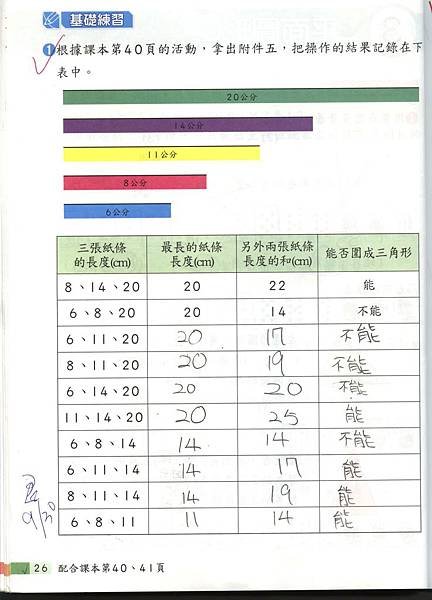 基礎練習
1 根據課本第40頁的活動，拿出附件五，把操作的結果記錄在下
表中。
20公分
14公分
11公分
8公分
6公分
三張紙條的長度(cm) 最長的紙條長度(cm) 另外兩張紙條長度的和(cm) 能否圍成三角形
8、14、20 20 22 能
6、8、20 20 14 不能
6、11、20 20 17 不能
8、11、20 20 19 不能
6、14、20 20 20 不能
11、14、20 20 25 能
6、8、14 14 14 不能
6、11、14 14 17 能
8、11、14 14 19 能
6、8、11 11 14 能
9/30
26 配合課本第40、41頁